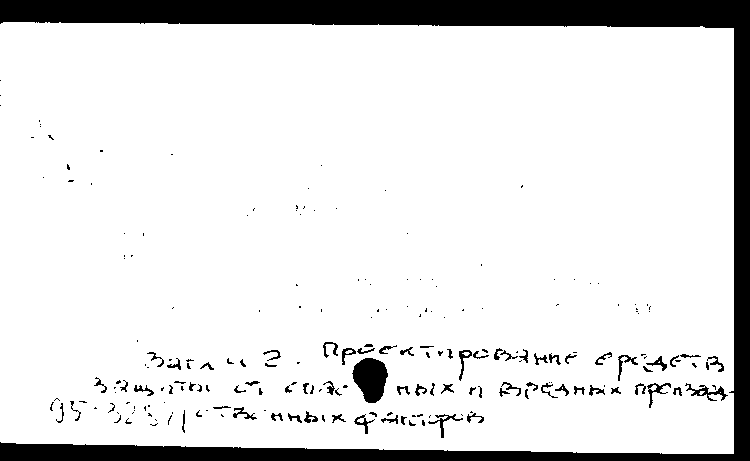 Загл. ч 2. Проектирование средств
защиты от опас ных и вредных производ-
95-3257 ственных факторов